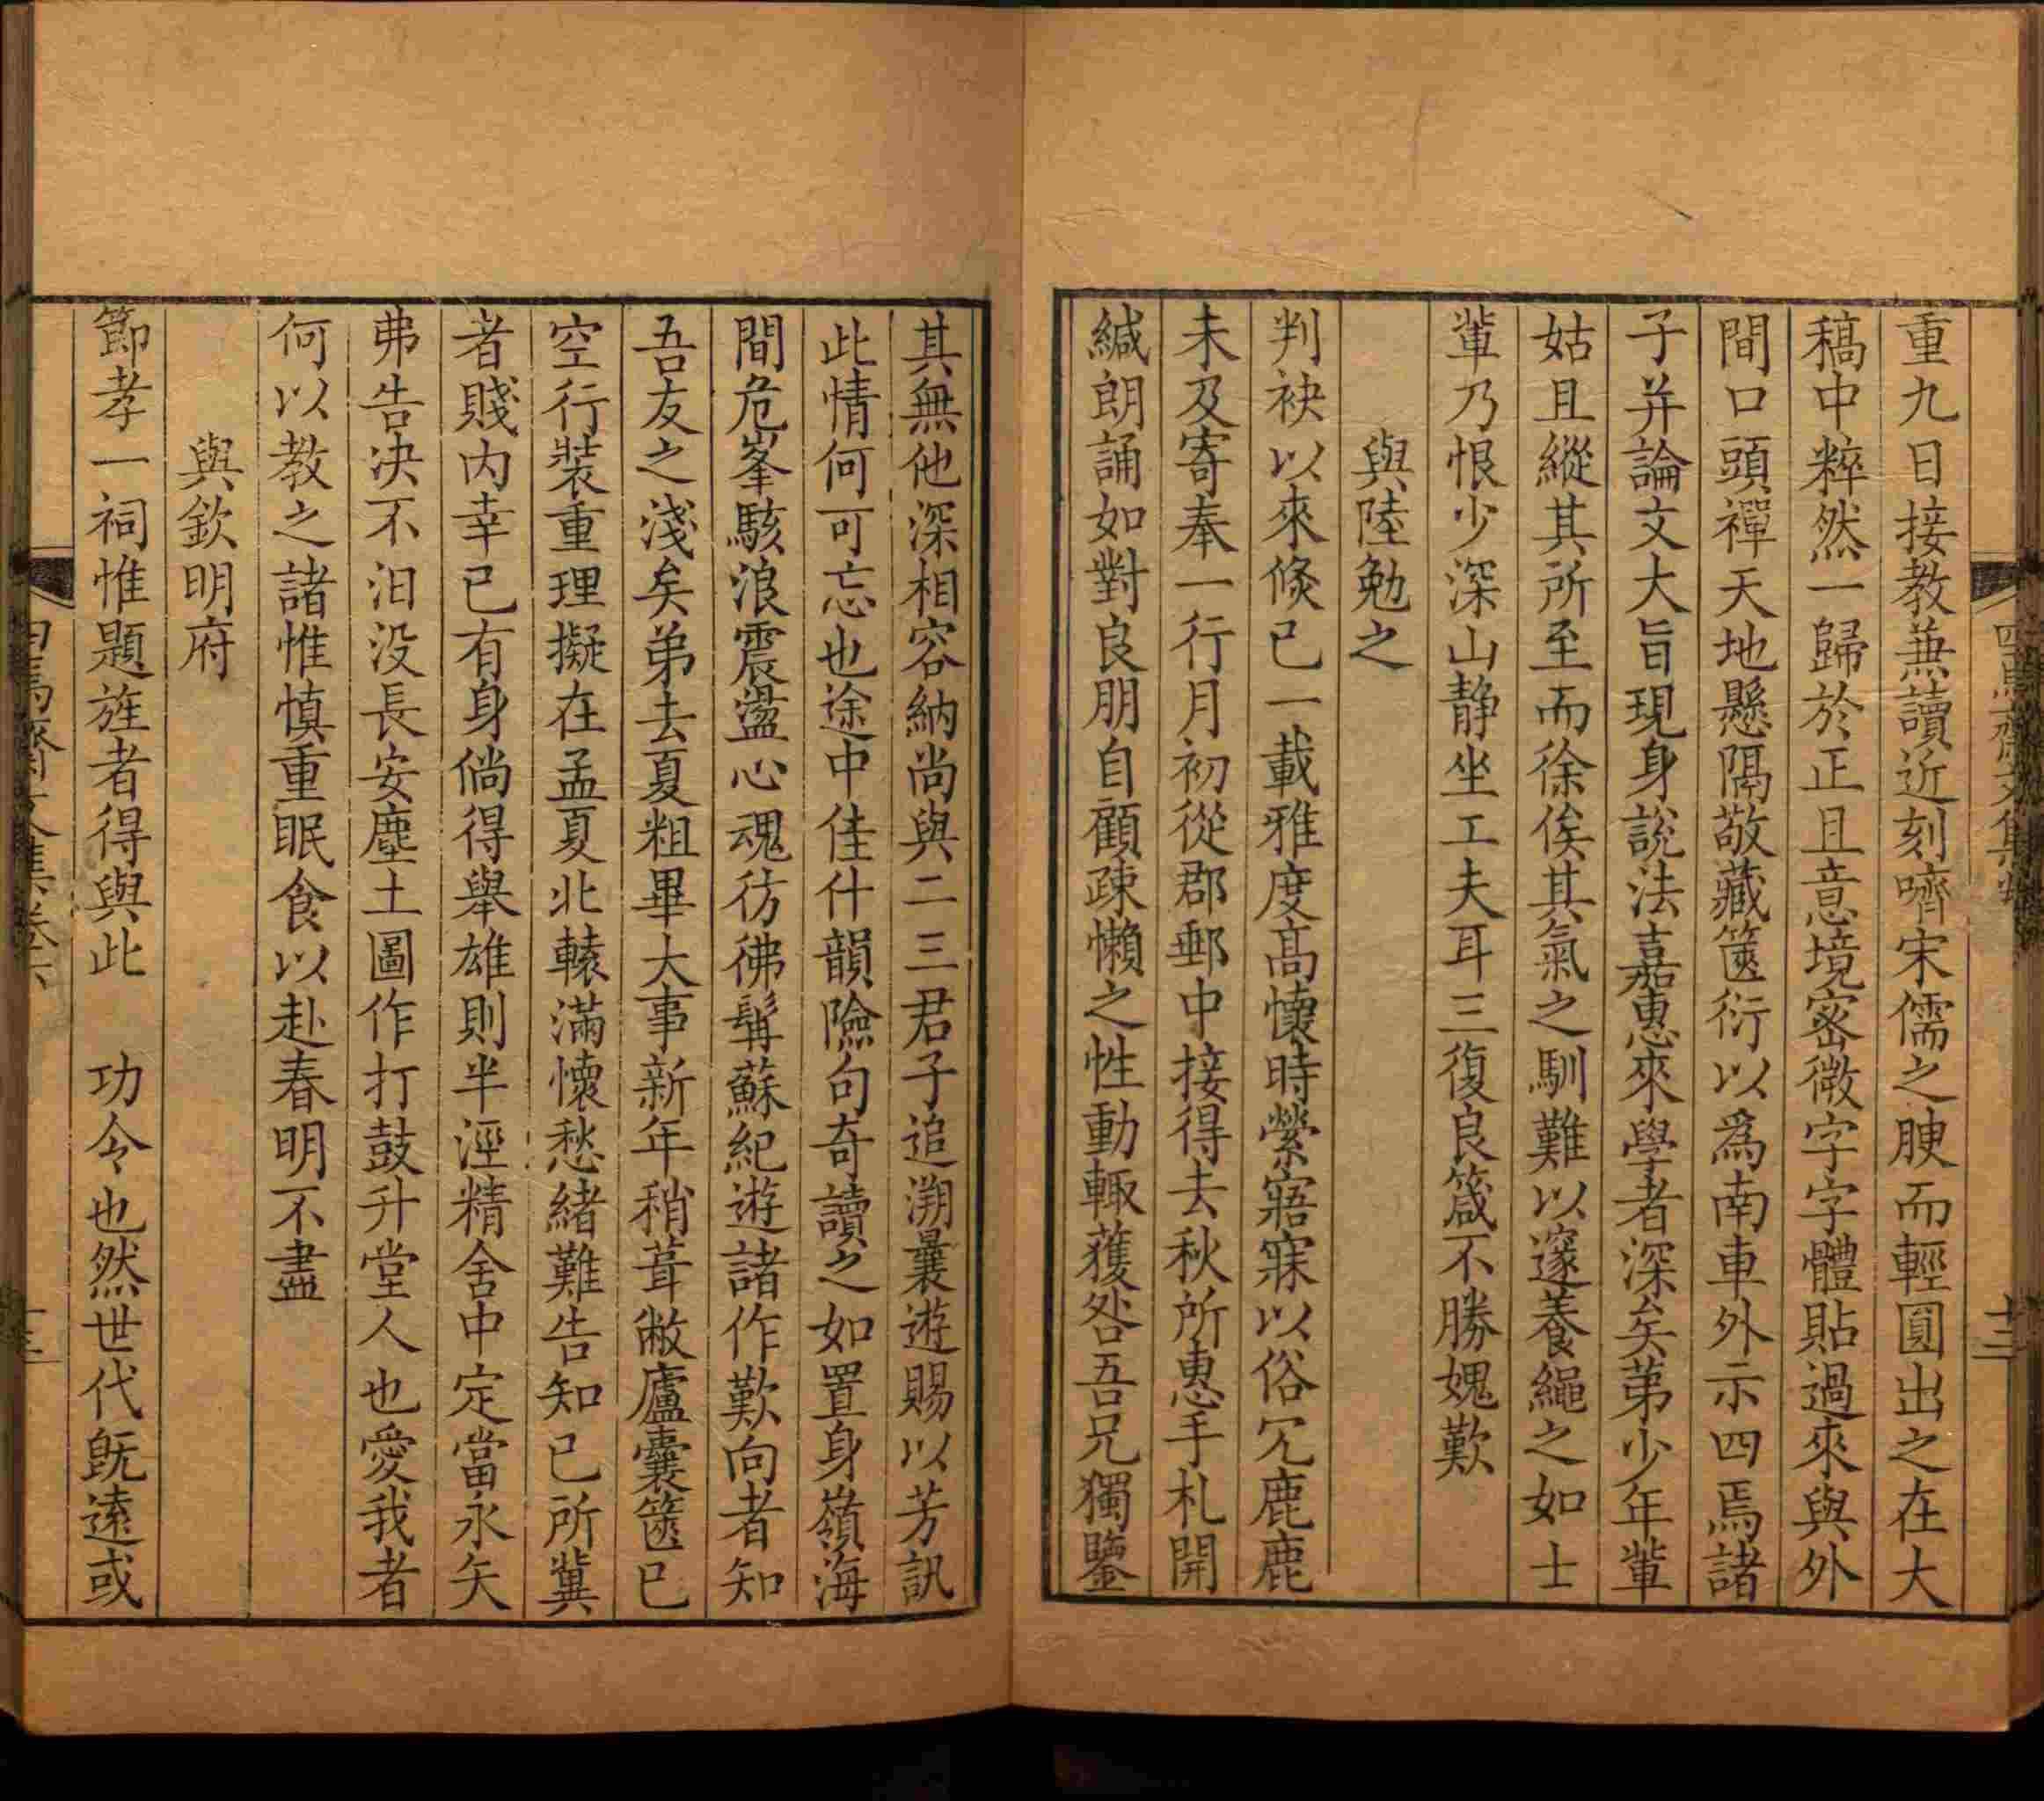 重九日接教兼讀近刻嚌宋儒之腴而輕圓出之在大
稿中粹然一歸於正且意境密微字字體貼過來與外
間口頭禪天地懸隔敬藏篋衍以爲南車外示四焉諸
子并論文大旨現身說法嘉惠來學者深矣苐少年輩
姑且縱其所至而徐俟其氣之馴難以邃養繩之如士
輩乃恨少深山靜坐工夫耳三復良箴不勝媿歎
與陸勉之
判袂以來倏已一載雅度高懷時縈寤寐以俗冗鹿鹿
未及寄奉一行月初從郡郵中接得去秋所惠手札開
緘朗誦如對良朋自顧疎懶之性動輒獲咎吾兄獨鑒
其無他深相容納尚與二三君子追溯曩遊賜以芳訊
此情何可忘也途中佳什韻險句奇讀之如置身嶺海
間危峯駭浪震盪心魂彷彿髯蘇紀遊諸作歎向者知
吾友之淺矣弟去夏粗畢大事新年稍葺敝廬囊篋已
空行裝重理擬在孟夏北轅滿懷愁緒難告知已所冀
者賤内幸已有身倘得舉雄則半涇精舍中定當永矢
弗告决不汩没長安塵土圖作打鼓升堂人也愛我者
何以教之諸惟慎重眠食以赴春明不盡
與欽明府
節孝一祠惟題旌者得與此 功令也然世代旣遠或